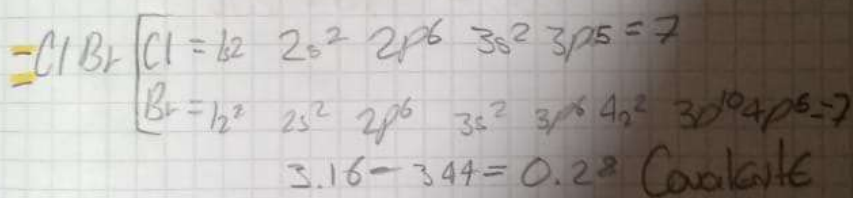 =ClBr Cl = 1s2 2s² 2p6 3s² 3p5 = 7
Br = 1s² 2s² 2p6 3s² 3p6 4s² 3D10 4p5 = 7
3.16 - 344 = 0.28 Covalente